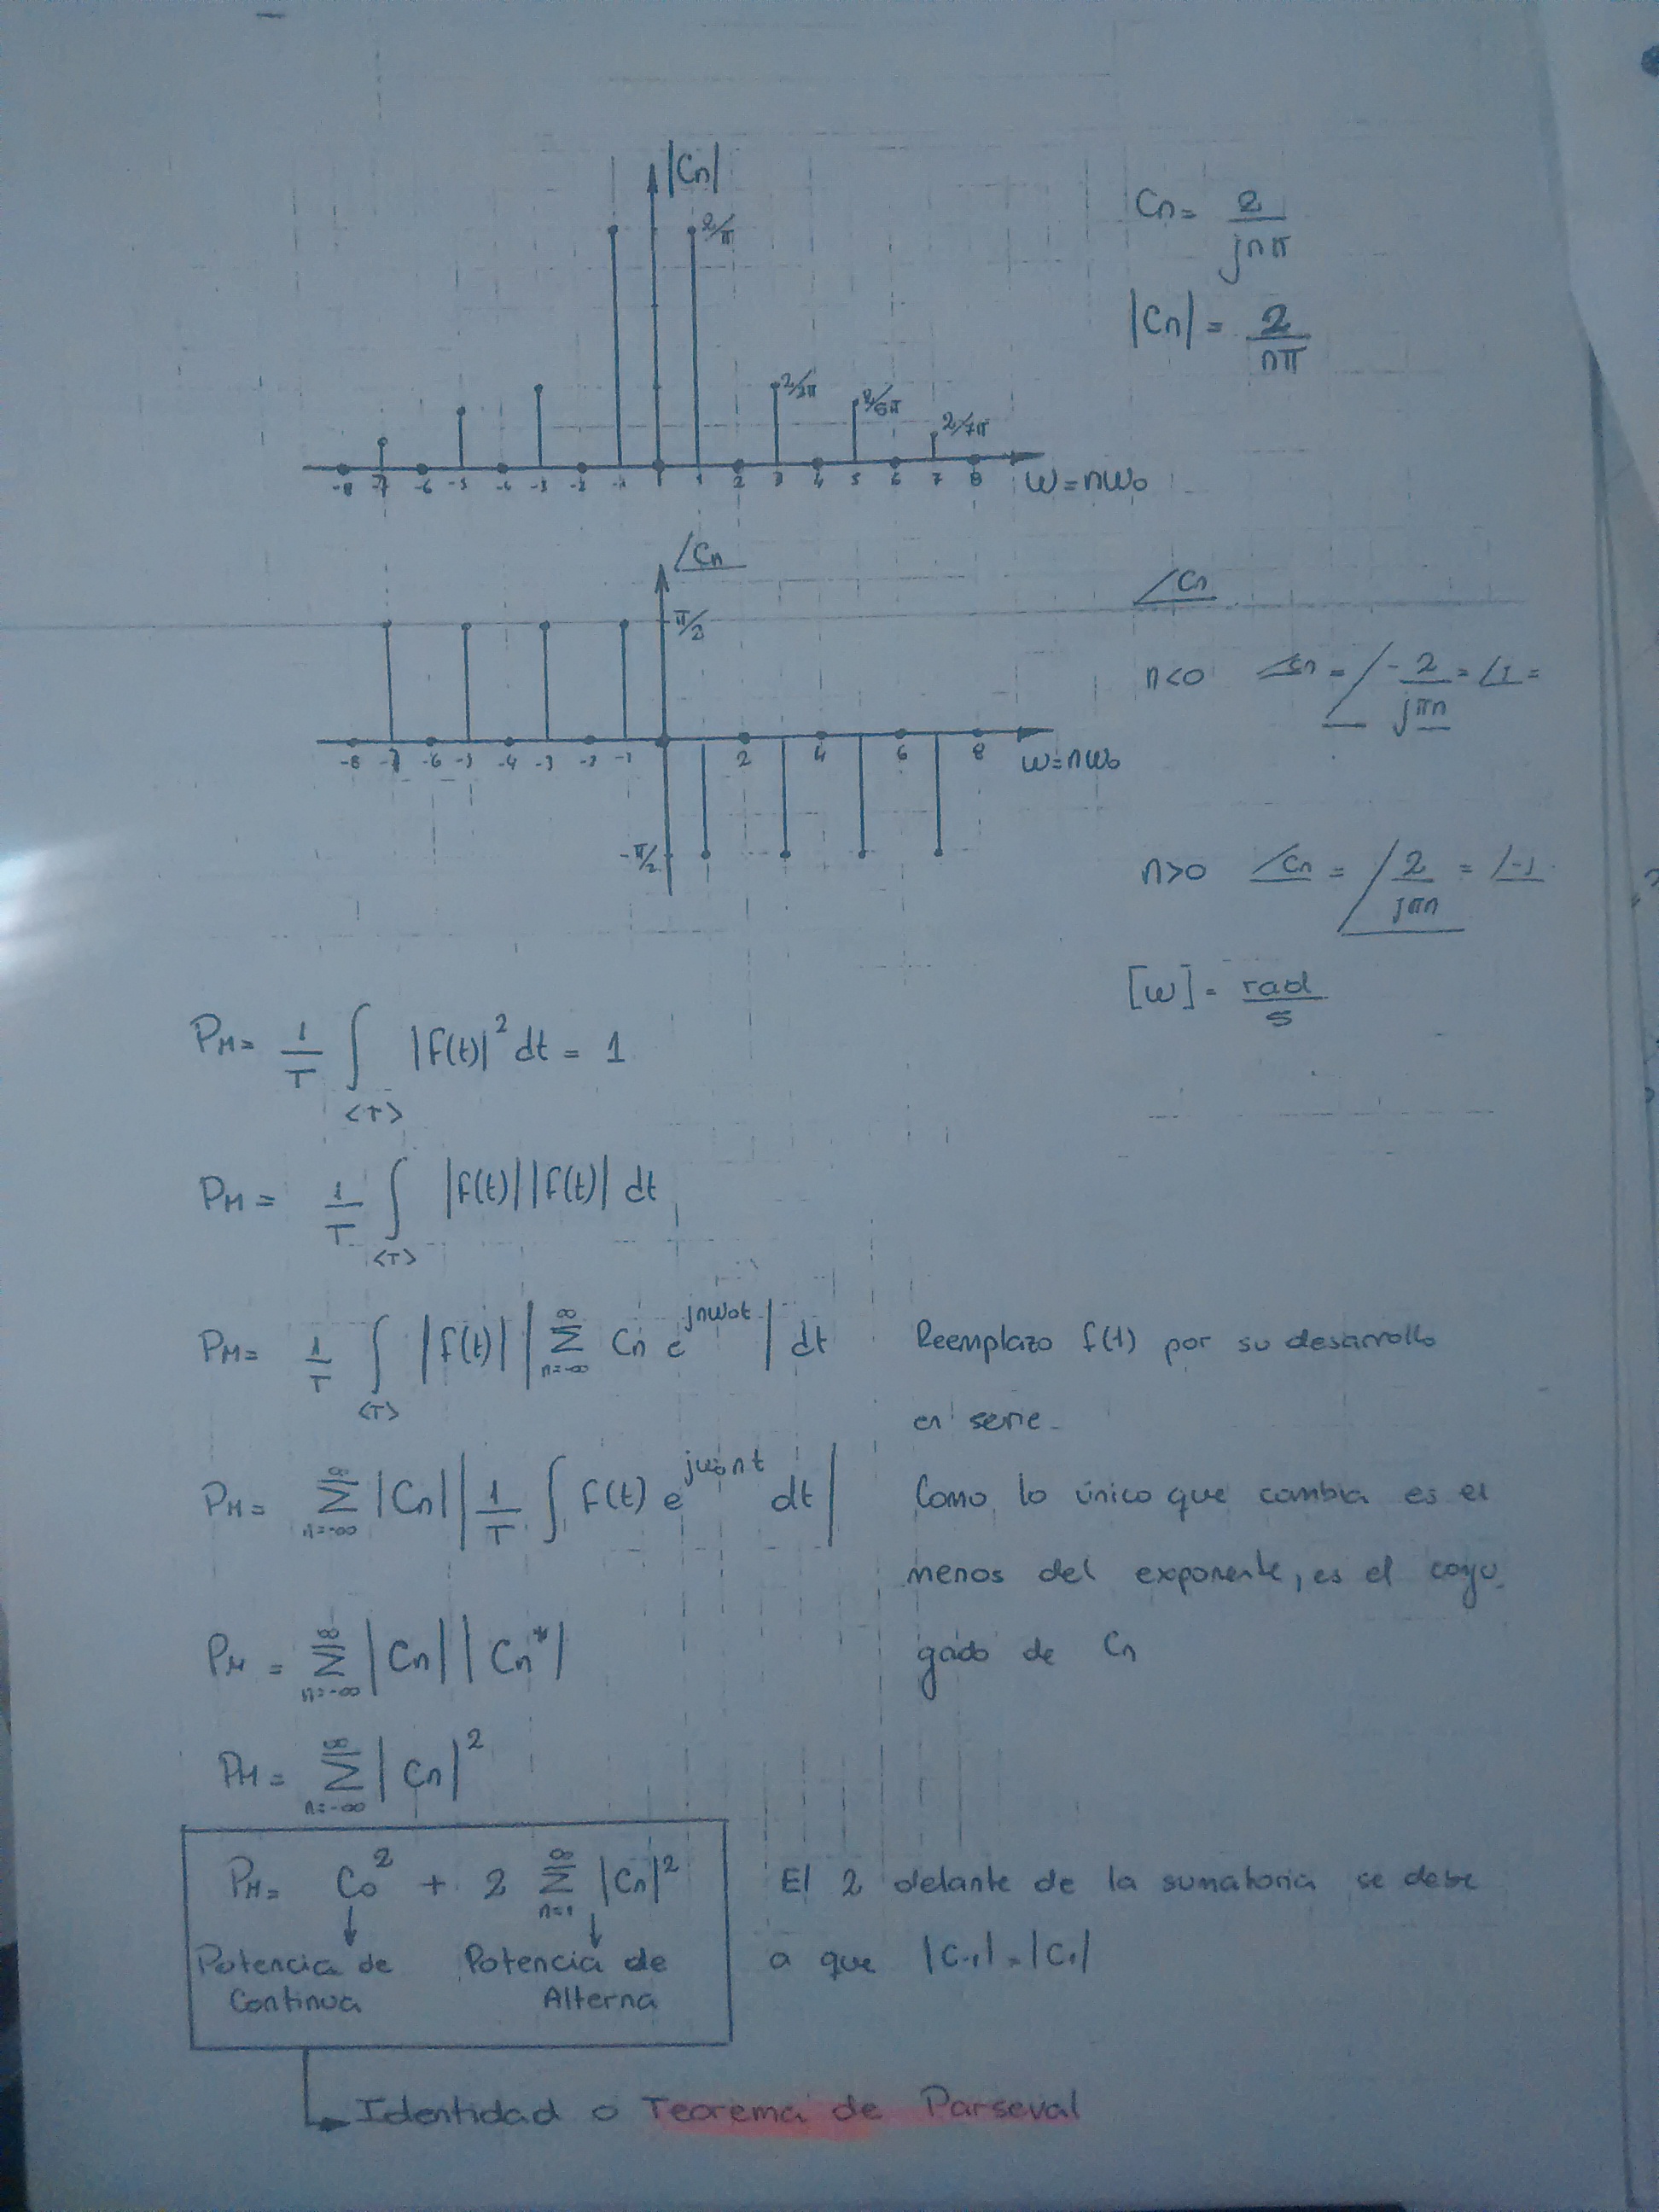 |Cn|
2/π
2/3π
2/5π
2/7π
-8 -7 -6 -5 -4 -3 -2 -1 1 2 3 4 5 6 7 8 ω=nω₀
Cn= 2/jnπ
|Cn| = 2/nπ
∠Cn
π/2
-8 -7 -6 -5 -4 -3 -2 -1 2 4 6 8 ω=nω₀
-π/2
∠Cn
n<0 ∠Cn = ∠-2/jπn = ∠j =
n>0 ∠Cn = ∠2/jπn = ∠-j
[ω] = rad/s
PM= 1/T ∫<T> |f(t)|² dt = 1
PM = 1/T ∫<T> |f(t)||f(t)| dt
PM= 1/T ∫<T> |f(t)| |∑n=-∞^∞ Cn e^jnω₀t| dt Reemplazo f(t) por su desarrollo
en serie.
PM= ∑n=-∞^∞ |Cn| |1/T ∫ f(t) e^jω₀nt dt| Como lo único que cambia es el
menos del exponente, es el conju
PM = ∑n=-∞^∞ |Cn||Cn*| gado de Cn
PM = ∑n=-∞^∞ |Cn|²
PM= C₀² + 2 ∑n=1^∞ |Cn|² El 2 delante de la sumatoria se debe
a que |C-1| = |C1|
Potencia de Continua
Potencia de Alterna
Identidad o Teorema de Parseval